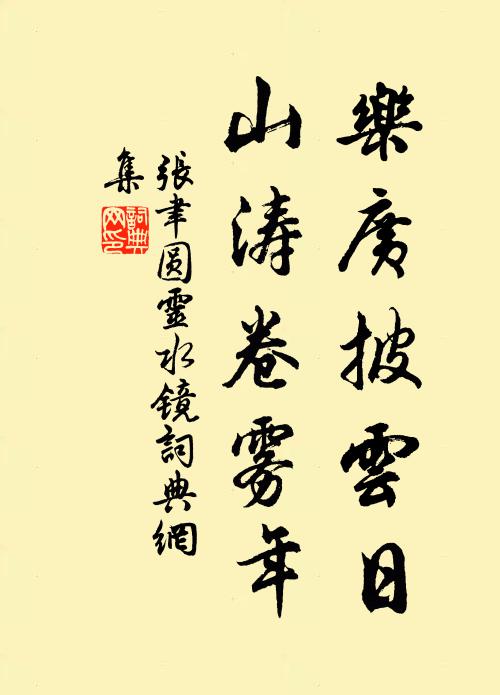 樂廣披雲日
山涛卷雾年
張聿圓靈水镜詞典網
集
詞典
网印